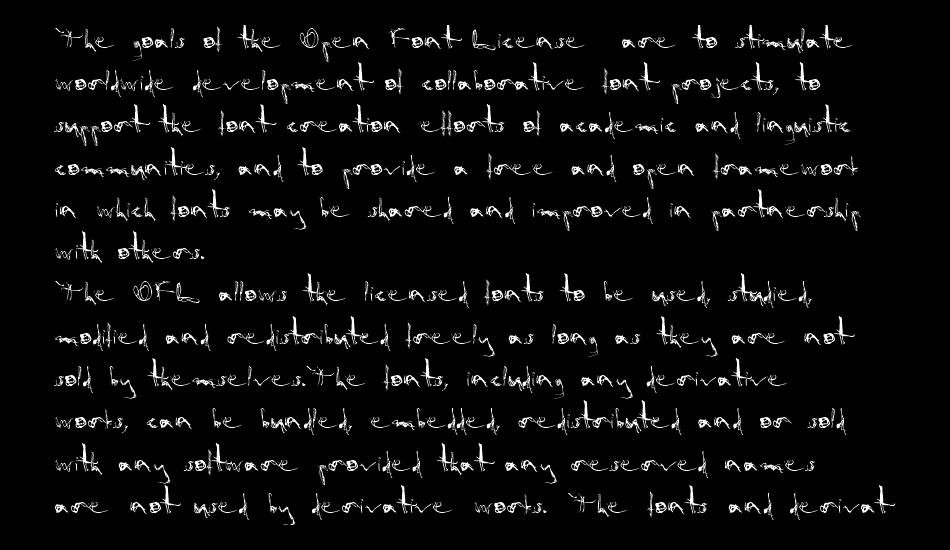 The goals of the Open Font License are to stimulate
worldwide development of collaborative font projects, to
support the font creation efforts of academic and linguistic
communities, and to provide a free and open framework
in which fonts may be shared and improved in partnership
with others.
The OFL allows the licensed fonts to be used, studied,
modified and redistributed freely as long as they are not
sold by themselves. The fonts, including any derivative
works, can be bundled, embedded, redistributed and or sold
with any software provided that any reserved names
are not used by derivative works. The fonts and derivat